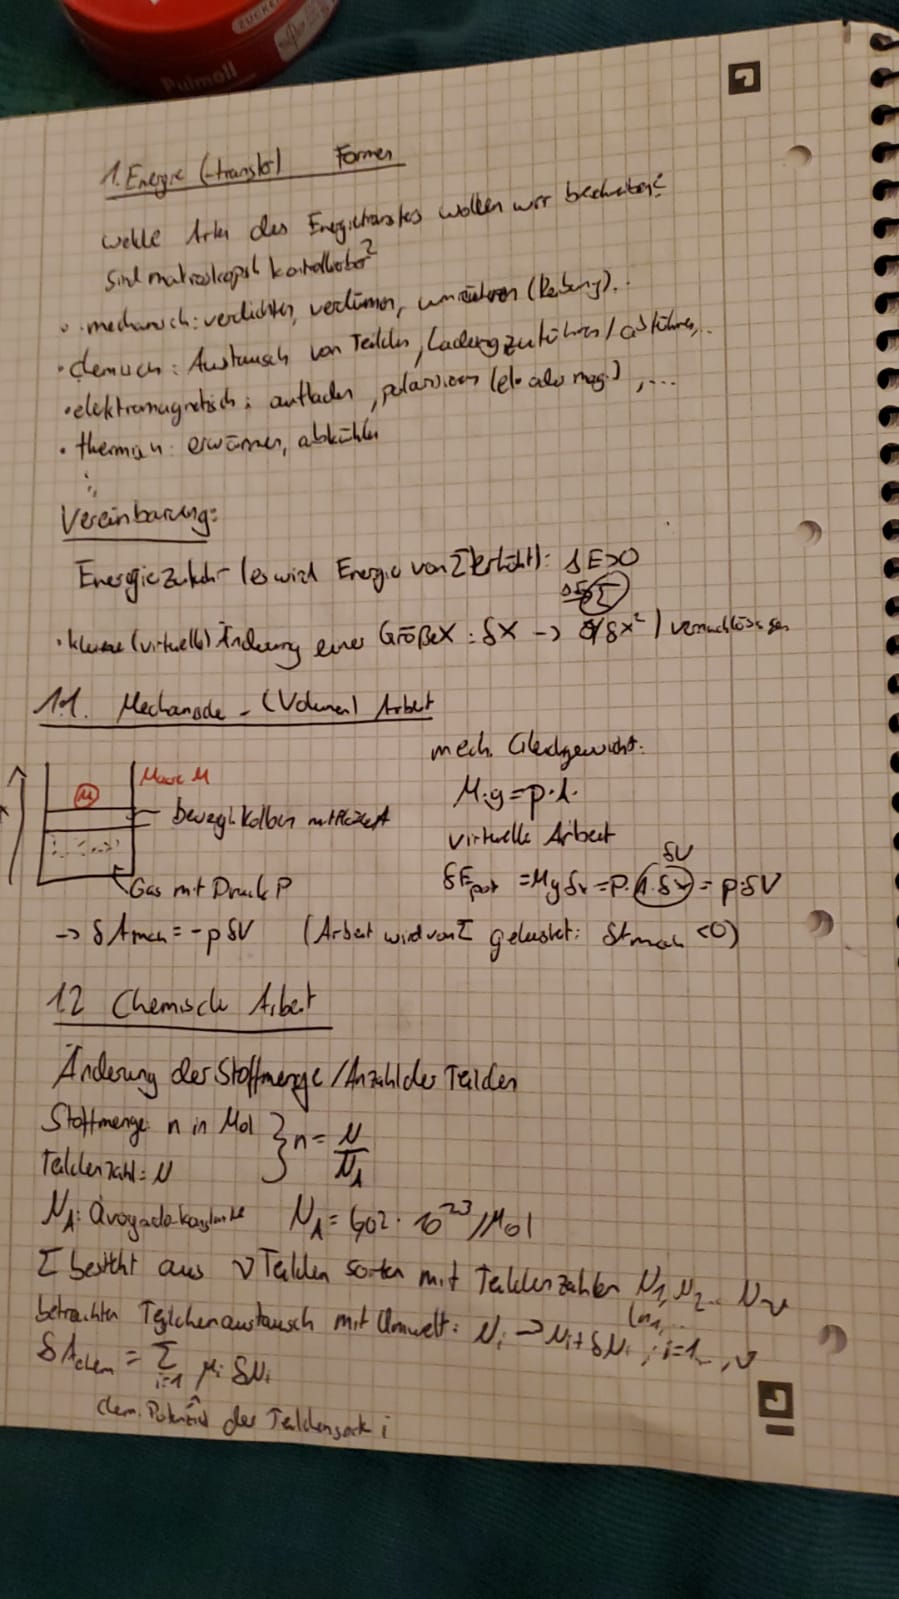 ZUCKER
Pulmoll
1. Energie (-transfer) Formen
Welche Arten des Energietransfers wollen wir beschreiben?
Sind makroskopisch kontrollierbar?
• mechanisch: verdichten, verformen, umrühren (Reibung)..
• chemisch: Austausch von Teilchen, Ladung zuführen/abführen,..
• elektromagnetisch: aufladen, polarisieren (el. oder mag.), ...
• thermisch: erwärmen, abkühlen
⋮
Vereinbarung:
Energiezufuhr (es wird Energie von Σ erhöht): ΔE>0
ΔE→Σ
• kleine (virtuelle) Änderung einer Größe X: δX → δX² vernachlässigen
1.1. Mechanische - (Volumen) Arbeit
mech. Gleichgewicht:
M Masse M
M·g=p·A.
bewegl. Kolben mit Fläche A
virtuelle Arbeit
δV
Gas mit Druck P
δE_pot = Mgδx = p·A·δx = p·δV
→ δA_mech = -pδV (Arbeit wird von Σ geleistet: δA_mech <0)
1.2 Chemische Arbeit
Änderung der Stoffmenge / Anzahl der Teilchen
Stoffmenge: n in Mol } n = N/N_A
Teilchenzahl: N
N_A: Avogadrokonstante N_A = 6,02 · 10^23/Mol
Σ besteht aus ν Teilchensorten mit Teilchenzahlen N_1, N_2 ... N_ν
betrachten Teilchenaustausch mit Umwelt: N_i → N_i + δN_i, i=1..., ν
δA_chem = Σ_{i=1} μ_i δN_i
chem. Potential der Teilchensorte i